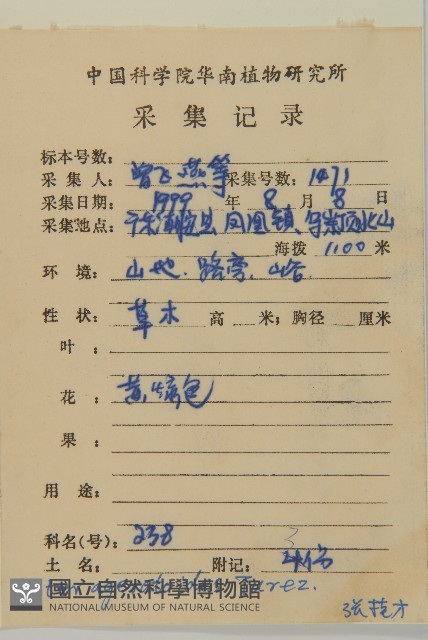 中国科学院华南植物研究所
采集记录
标本号数：
采集人：曾飞燕等 采集号数：1471
采集日期：1999 年 8 月 8 日
采集地点：广东潮安县凤凰镇、乌岽顶水山
海拨 1100 米
环境：山地．路旁．山谷
性状：草本 高 米；胸径 厘米
叶：
花：黄绿色
果：
用途：
科名(号)：238
土名： 附记：
Turcz.
國立自然科學博物館
NATIONAL MUSEUM OF NATURAL SCIENCE